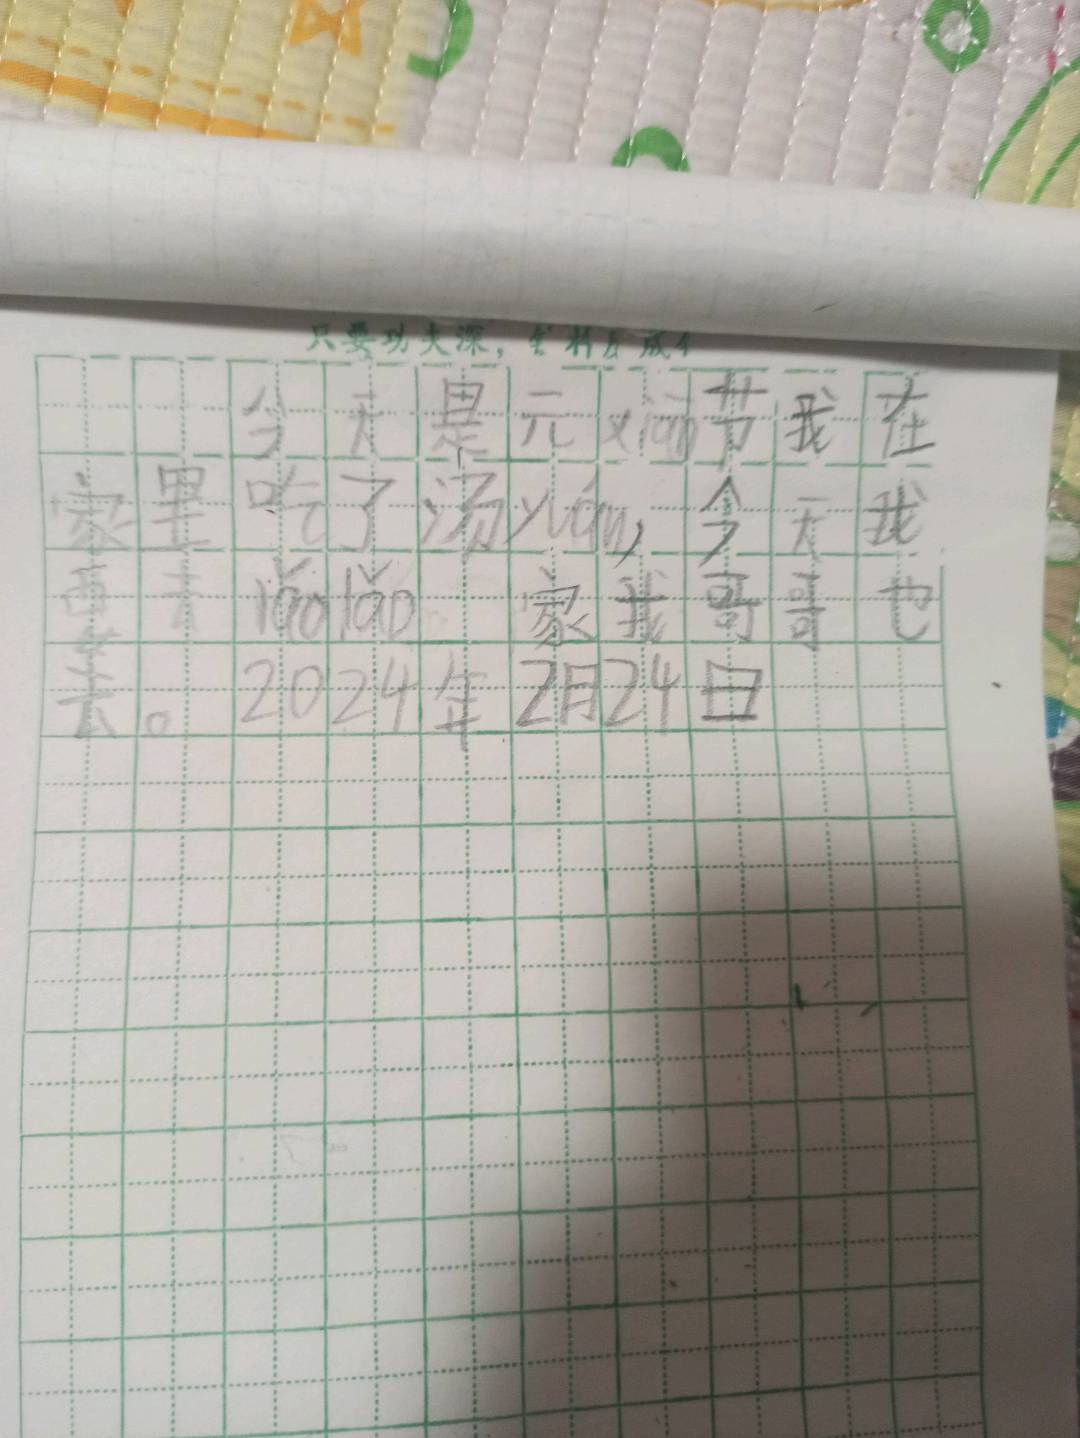 只要功夫深，
今天是元xiāo节我在
家里吃了汤yuán，今天我
要去lǎolao家我哥哥也
去。2024年2月24日